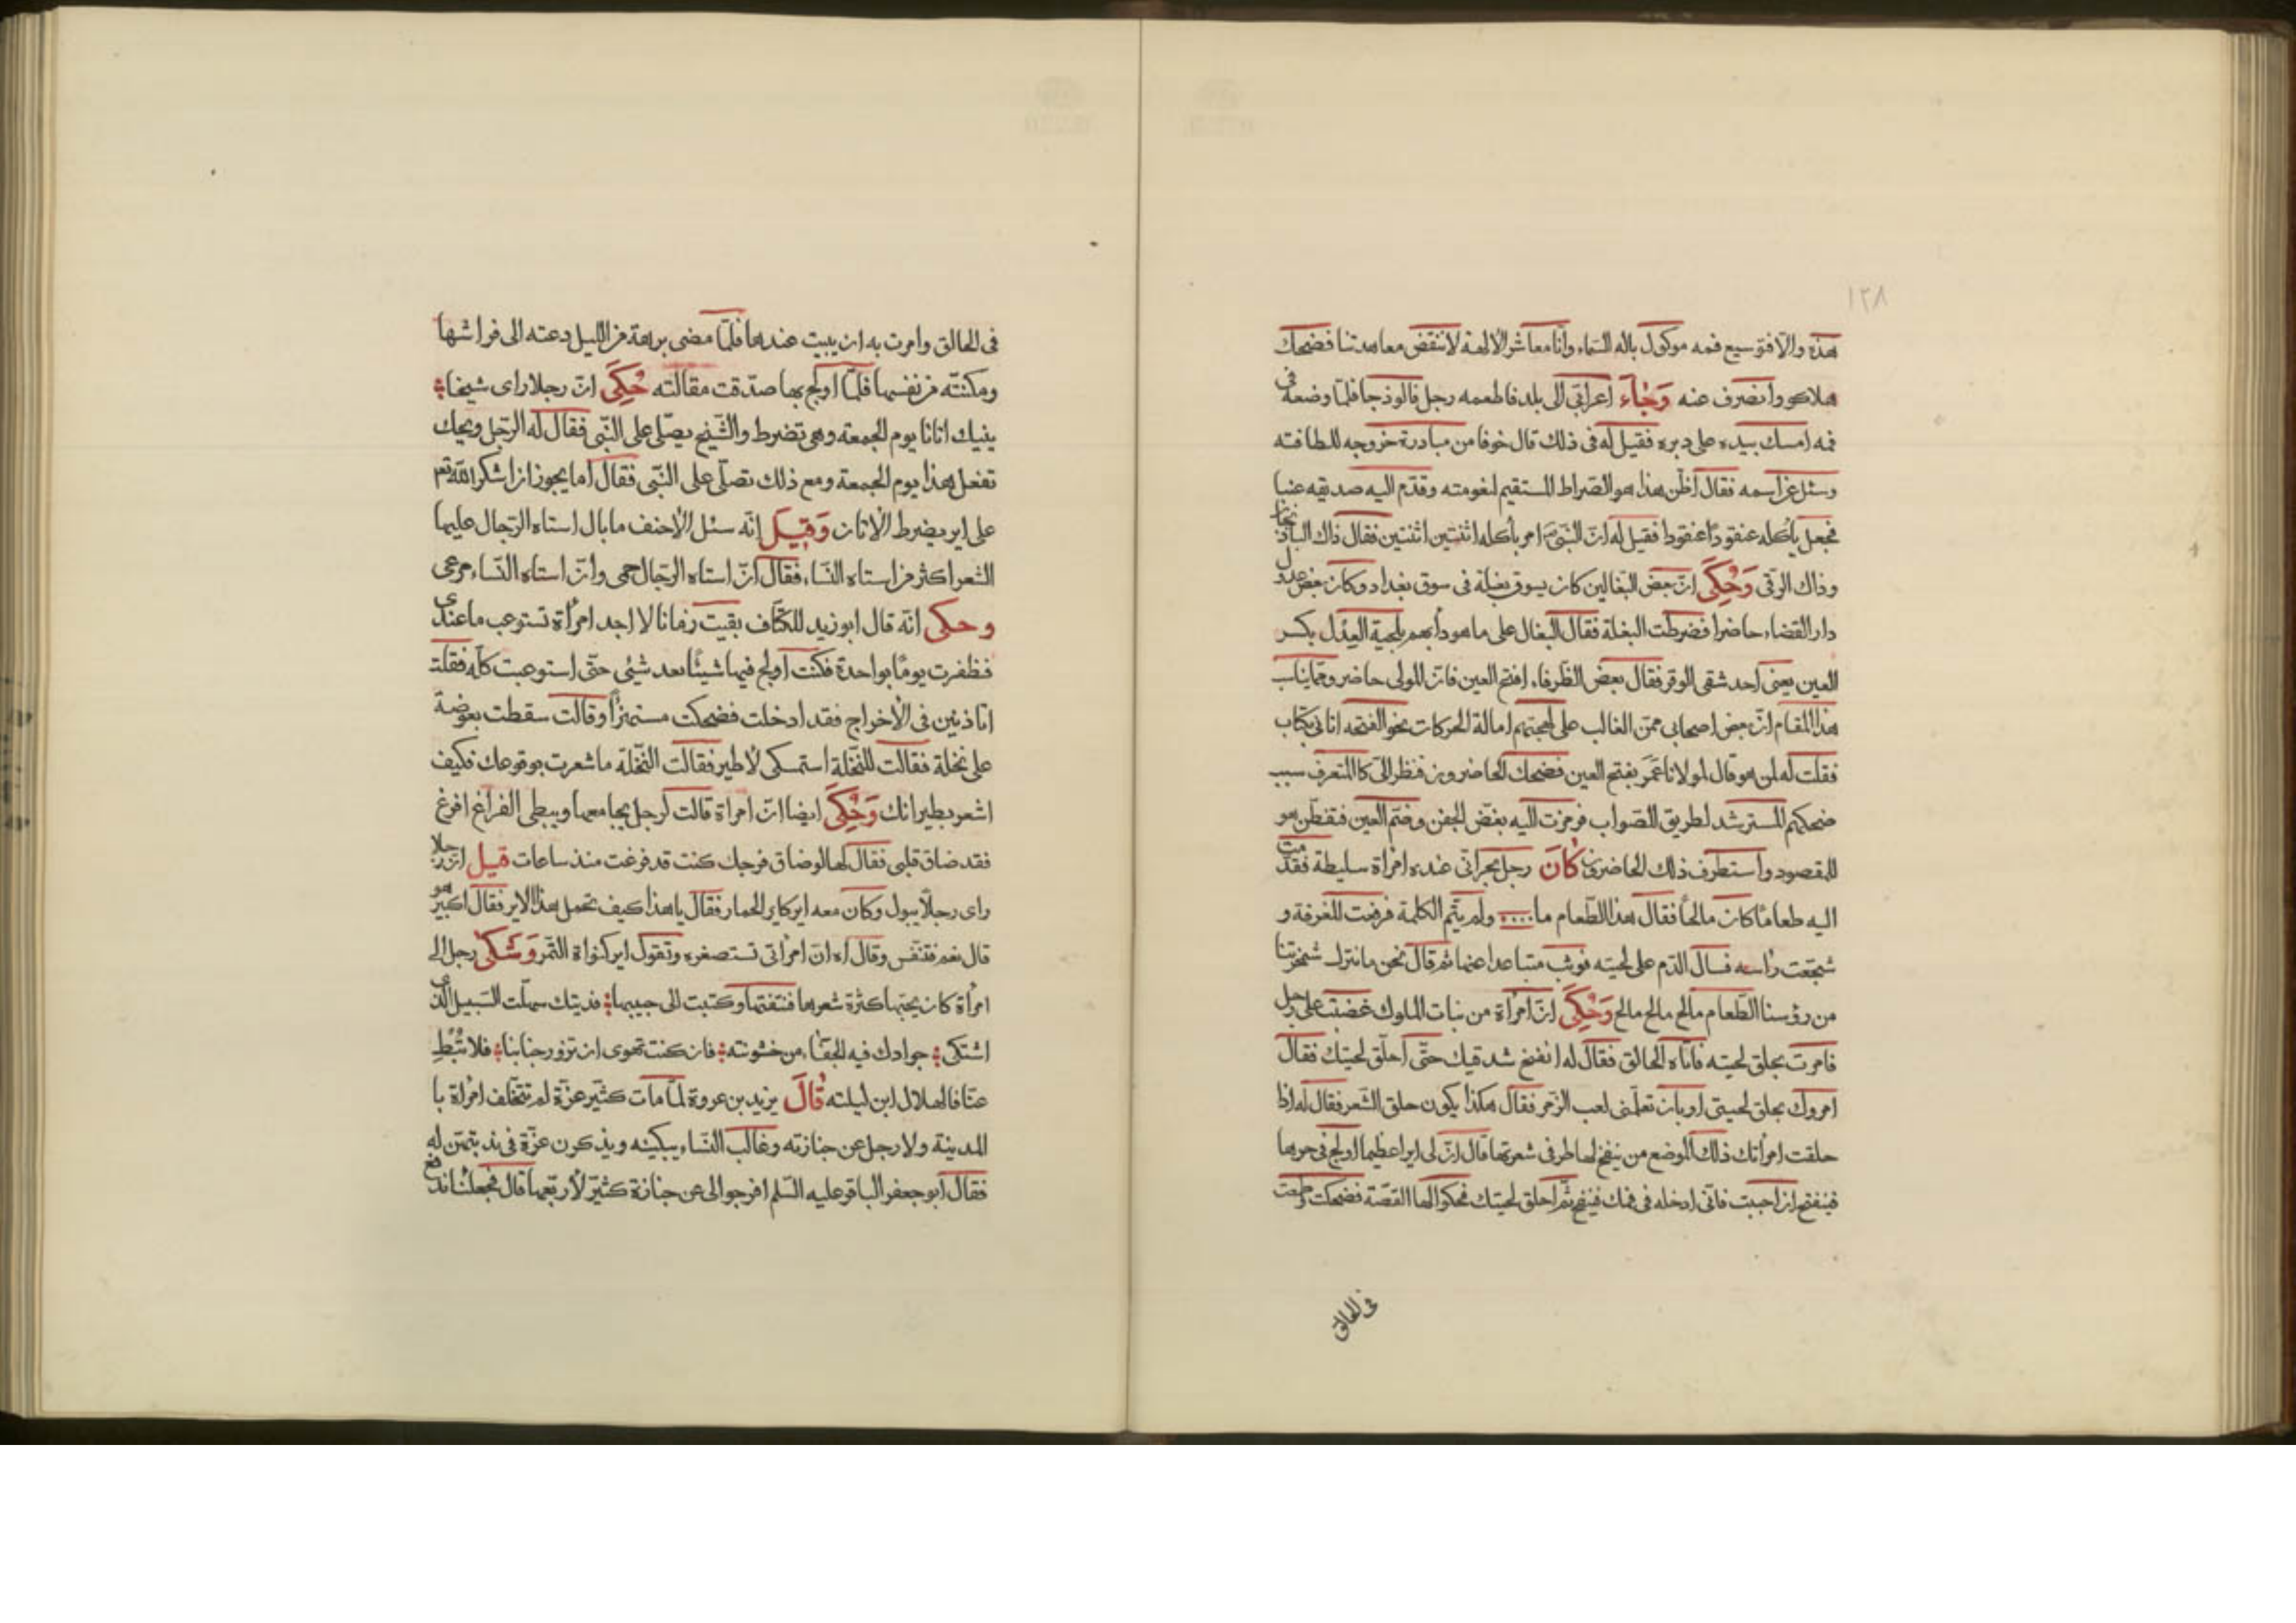 ١٢٨
هذه والافتوسيع فمه موكول باله السماء وانا معاشر الالهة لا ننقض معاهدتنا فضحك
هلاكو وانصرف عنه وَجٰآءَ اعرابي الى بلد فاطعمه رجل فالوذجا فلما وضعه في
فمه امسك بيده على دبره فقيل له في ذلك قال خوفا من مبادرة خروجه للطافته
وسئل عن اسمه فقال اظن هذا هو الصراط المستقيم لنعومته وقدم اليه صديقه عنبا
فجعل يأكله عنقودا عنقودا فقيل له ان النبي امر بأكله اثنتين اثنتين فقال ذاك الباذنجان
وذاك الرقى وَحُكِىَ ان بعض البغالين كان يسوق بغلة في سوق بغداد وكان بعض عدول
دار القضاء حاضرا فضرطت البغلة فقال البغال على ما هو دأبهم بلحية العِدل بكسر
العين يعنى احد شقى الوقر فقال بعض الظرفاء افتح العين فان المولى حاضر ومما يناسب
هذا المقام ان بعض اصحابي ممن الغالب على لهجتهم امالة الحركات نحو الفتحه اتاني بكتاب
فقلت له لمن هو قال لمولانا عَمَر بفتح العين فضحك الحاضرون فنظر الىّ كالمتعرف سبب
ضحكهم المسترشد لطريق الصواب فرمزت اليه بغض الجفن وضم العين فتفطن هو
للمقصود واستظرف ذلك الحاضرون كٰانَ رجل بحراني عنده امرأة سليطة فقدمت
اليه طعاما كان مالحا فقال هذا الطعام ما.... ولم يتم الكلمة فرفعت المغرفة و
شججت رأسه فسال الدم على لحيته فوثب متباعدا عنها ثم قال نحن ما ننزل شمختنا
من رؤسنا الطعام مالح مالح مالح وَحُكِىَ ان امرأة من بنات الملوك غضبت على رجل
فامرت بحلق لحيته فاتاه الحالق فقال له انفخ شدقيك حتى احلق لحيتك فقال
امروك بحلق لحيتي او بان تعلمني لعب الزمر فقال هكذا يكون حلق الشعر فقال له اذا
حلقت امرأتك ذلك الموضع من ينفخ لها طرفي شعرتها قال ان لي ايرا عظيما اولج في حرها
فينفتح ان احببت فاني ادخله في فمك فينفخ ثم احلق لحيتك فحكوا لها القصة فضحكت وطمعت
في الحالق
في الحالق وامرت به ان يبيت عندها فلما مضى برهة من الليل دعته الى فراشها
ومكنته من نفسها فلما اولج بها صدقت مقالته حُكِىَ ان رجلا راى شيخا
ينيك اتانا يوم الجمعة وهى تضرط والشيخ يصلى على النبي فقال له الرجل ويحك
تفعل هذا يوم الجمعة ومع ذلك تصلى على النبي فقال اما يجوز ان اشكر الله تعم
على اير يضرط الاتان وَقِيلَ انه سئل الاحنف ما بال استاه الرجال عليها
الشعر اكثر من استاه النساء فقال ان استاه الرجال حمى وان استاه النساء مرعى
وحكى انه قال ابو زيد للكتّاف بقيت زمانا لا اجد امرأة تستوعب ما عندى
فظفرت يوما بواحدة فكنت اولج فيها شيئا بعد شئى حتى استوعبت كله فقلت
اتاذنين في الاخراج فقد ادخلت فضحكت مستهزأ وقالت سقطت بعوضة
على نخلة فقالت للنخلة استمسكى لأطير فقالت النخلة ما شعرت بوقوعك فكيف
اشعر بطيرانك وَحُكِىَ ايضا ان امراة قالت لرجل يجامعها ويبطى الفراغ افرغ
فقد ضاق قلبى فقال لها لو ضاق فرجك كنت قد فرغت منذ ساعات قيل ان رجلا
راى رجلا يبول وكان معه اير كاير الحمار فقال يا هذا كيف تحمل هذا الاير فقال اكبير هو
قال نعم فتنفس وقال اه ان امرأتى تستصغره وتقول اير كنواة التمر وَشَكىٰ رجل الى
امرأة كان يحبها كثرة شعرها فنتفتها وكتبت الى حبيبها فديتك سهلت السبيل الذى
اشتكى جوادك فيه للحفا من خشونته فان كنت تهوى ان تزور جنابنا فلا تُبطِ
عنا فالهلال ابن ليلته قٰالَ يزيد بن عروة لما مات كثير عزة لم تتخلف امرأة با
المدينة ولا رجل عن جنازته وغالب النساء يبكينه ويذكرن عزة في ندبتهن له
فقال ابو جعفر الباقر عليه السلم افرجوا لى عن جنازة كثير لأرفعها قال فجعلنا ندفع